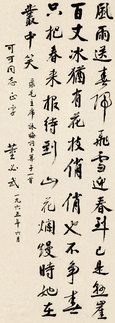 風雨送春歸飛雪迎春到已是懸崖
百丈冰猶有花枝俏俏也不争春
只把春来报待到山花爛熳時她在
叢中笑
录毛主席咏梅词卜算子一首
可可同志正字
董必武
一九六五年六月